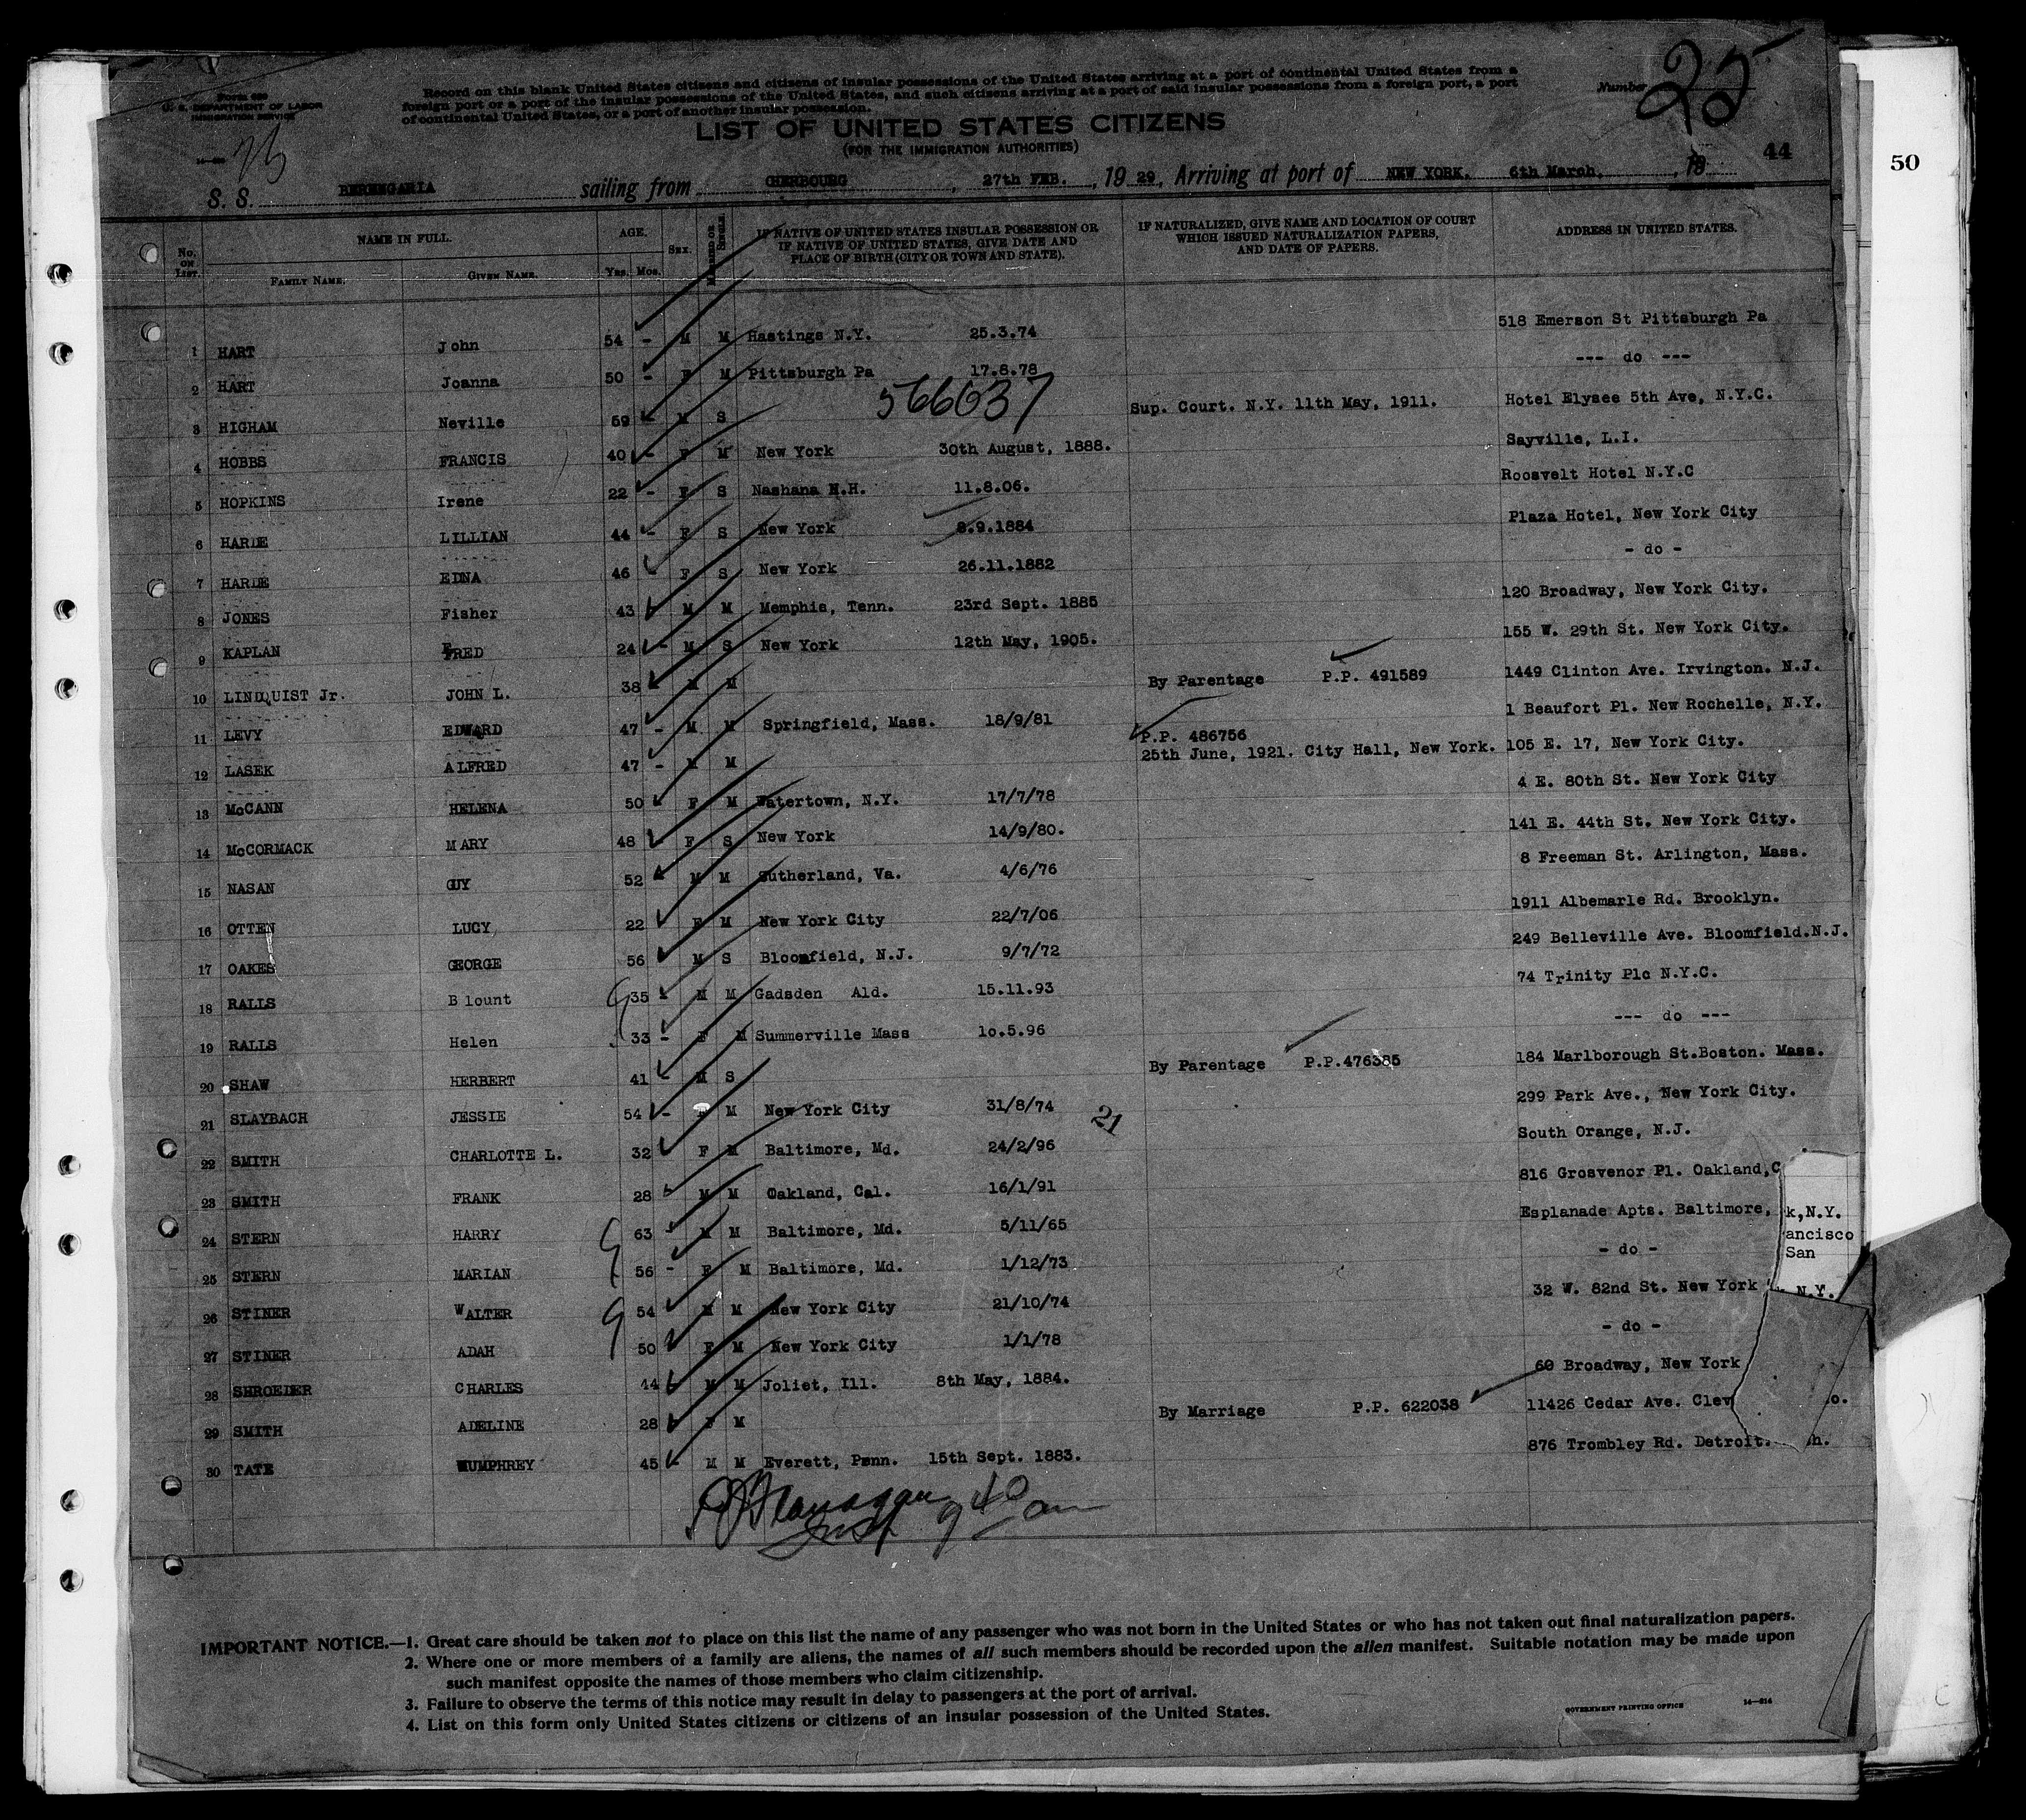 Form 630
U. S. DEPARTMENT OF LABOR
IMMIGRATION SERVICE
Record on this blank United States citizens and citizens of insular possessions of the United States arriving at a port of continental United States from a
foreign port or a port of the insular possessions of the United States, and such citizens arriving at a port of said insular possessions from a foreign port, a port
of continental United States, or a port of another insular possession.
Number 25
LIST OF UNITED STATES CITIZENS
(FOR THE IMMIGRATION AUTHORITIES)
44
50
S. S. BERENGARIA sailing from CHERBOURG, 27th FEB., 19 29, Arriving at port of NEW YORK. 6th March, 19
No. ON LIST. NAME IN FULL. AGE. SEX. MARRIED OR SINGLE. IF NATIVE OF UNITED STATES INSULAR POSSESSION OR IF NATIVE OF UNITED STATES, GIVE DATE AND PLACE OF BIRTH (CITY OR TOWN AND STATE). IF NATURALIZED, GIVE NAME AND LOCATION OF COURT WHICH ISSUED NATURALIZATION PAPERS, AND DATE OF PAPERS. ADDRESS IN UNITED STATES.
FAMILY NAME. GIVEN NAME. Yrs. Mos.
1 HART John 54 - M M Hastings N.Y. 25.3.74 518 Emerson St Pittsburgh Pa
2 HART Joanna 50 - F M Pittsburgh Pa 17.8.78 --- do ---
566037
3 HIGHAM Neville 59 M S Sup. Court. N.Y. 11th May, 1911. Hotel Elysee 5th Ave, N.Y.C.
4 HOBBS FRANCIS 40 - F M New York 30th August, 1888. Sayville, L.I.
5 HOPKINS Irene 22 - F S Nashana N.H. 11.8.06. Roosvelt Hotel N.Y.C
6 HARDE LILLIAN 44 - F S New York 8.9.1884 Plaza Hotel, New York City
7 HARDE EDNA 46 - F S New York 26.11.1882 - do -
8 JONES Fisher 43 M M Memphis, Tenn. 23rd Sept. 1885 120 Broadway, New York City.
9 KAPLAN FRED 24 - M S New York 12th May, 1905. 155 W. 29th St. New York City.
10 LINDQUIST Jr. JOHN L. 38 M M By Parentage P.P. 491589 1449 Clinton Ave. Irvington. N.J.
11 LEVY EDWARD 47 - M M Springfield, Mass. 18/9/81 1 Beaufort Pl. New Rochelle, N.Y.
P.P. 486756
12 LASEK ALFRED 47 - M M 25th June, 1921. City Hall, New York. 105 E. 17, New York City.
13 McCANN HELENA 50 F M Watertown, N.Y. 17/7/78 4 E. 80th St. New York City
14 McCORMACK MARY 48 F S New York 14/9/80. 141 E. 44th St. New York City.
15 NASAN GUY 52 M M Sutherland, Va. 4/6/76 8 Freeman St. Arlington, Mass.
16 OTTEN LUCY 22 F M New York City 22/7/06 1911 Albemarle Rd. Brooklyn.
17 OAKES GEORGE 56 M S Bloomfield, N.J. 9/7/72 249 Belleville Ave. Bloomfield.N.J.
18 RALLS Blount 35 M M Gadsden Ald. 15.11.93 74 Trinity Plc N.Y.C.
19 RALLS Helen 33 - F M Summerville Mass 10.5.96 --- do ---
20 SHAW HERBERT 41 - M S By Parentage P.P.476385 184 Marlborough St.Boston. Mass.
21 SLAYBACH JESSIE 54 - F M New York City 31/8/74 21 299 Park Ave., New York City.
22 SMITH CHARLOTTE L. 32 F M Baltimore, Md. 24/2/96 South Orange, N.J.
23 SMITH FRANK 28 M M Oakland, Cal. 16/1/91 816 Grosvenor Pl. Oakland,C
24 STERN HARRY 63 M M Baltimore, Md. 5/11/65 Esplanade Apts. Baltimore,
k,N.Y.
ancisco
San
25 STERN MARIAN 56 - F M Baltimore, Md. 1/12/73 - do -
26 STINER WALTER 54 M M New York City 21/10/74 32 W. 82nd St. New York
N.Y.
27 STINER ADAH 50 F M New York City 1/1/78 - do -
28 SHROEDER CHARLES 44 M M Joliet, Ill. 8th May, 1884. 60 Broadway, New York
29 SMITH ADELINE 28 F M By Marriage P.P. 622038 11426 Cedar Ave. Clev o.
30 TATE WUMPHREY 45 M M Everett, Penn. 15th Sept. 1883. 876 Trombley Rd. Detroit. h.
Flanagan
Insp 9 40 am
IMPORTANT NOTICE.—1. Great care should be taken not to place on this list the name of any passenger who was not born in the United States or who has not taken out final naturalization papers.
2. Where one or more members of a family are aliens, the names of all such members should be recorded upon the alien manifest. Suitable notation may be made upon
such manifest opposite the names of those members who claim citizenship.
3. Failure to observe the terms of this notice may result in delay to passengers at the port of arrival.
4. List on this form only United States citizens or citizens of an insular possession of the United States.
GOVERNMENT PRINTING OFFICE 14—614